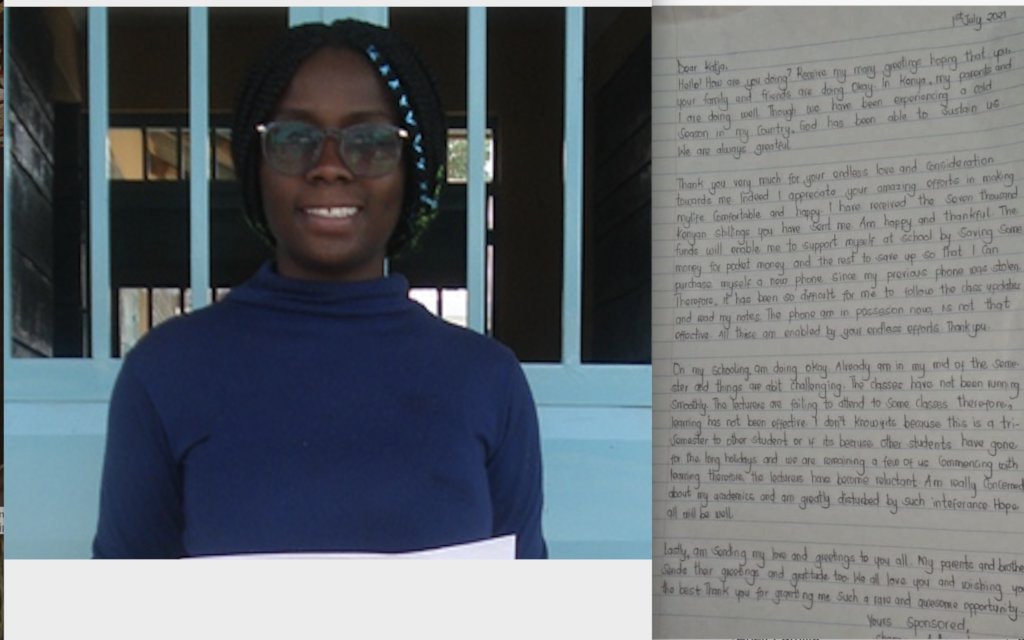 1st July 2021
Dear Katja,
Hello! How are you doing? Receive my many greetings hoping that you,
your family and friends are doing Okay. In Kenya, my parents and
I are doing well. Though we have been experiencing a cold
Season in my Country, God has been able to Sustain us
We are always greatful.
Thank you very much for your endless love and Consideration
towards me. Indeed I appreciate your amazing efforts in making
mylife Comfortable and happy. I have received the Seven thousand
Kenyan shillings you have Sent me. Am happy and thankful. The
funds will enable me to support myself at school by Saving Some
money for pocket money and the rest to save up so that I can
purchase myself a new phone. Since my previous phone was stolen.
Therefore, it has been so difficult for me to follow the class updates
and read my notes. The phone am in possesion now, is not that
effective. All these am enabled by your endless efforts. Thankyou.
On my schooling, am doing okay. Already am in my mid of the Seme-
ster and things are abit challenging. The classes have not been running
Smoothly. The lecturers are failing to attend to Some classes therefore,
learning has not been effective. I don't know if its because this is a tri-
semester to other student or if its because other students have gone
for the long holidays and we are remaining a few of us Commencing with
learning therefore, the lecturers have become reluctant. Am really Concerned
about my academics and am greatly disturbed by such inteferance. Hope
all will be well.
Lastly, am Sending my love and greetings to you all. My parents and brothe
Sends their greetings and gratitude too. We all love you and wishing you
the best. Thank you for granting me such a rare and awesome opportunity.
Yours Sponsored,